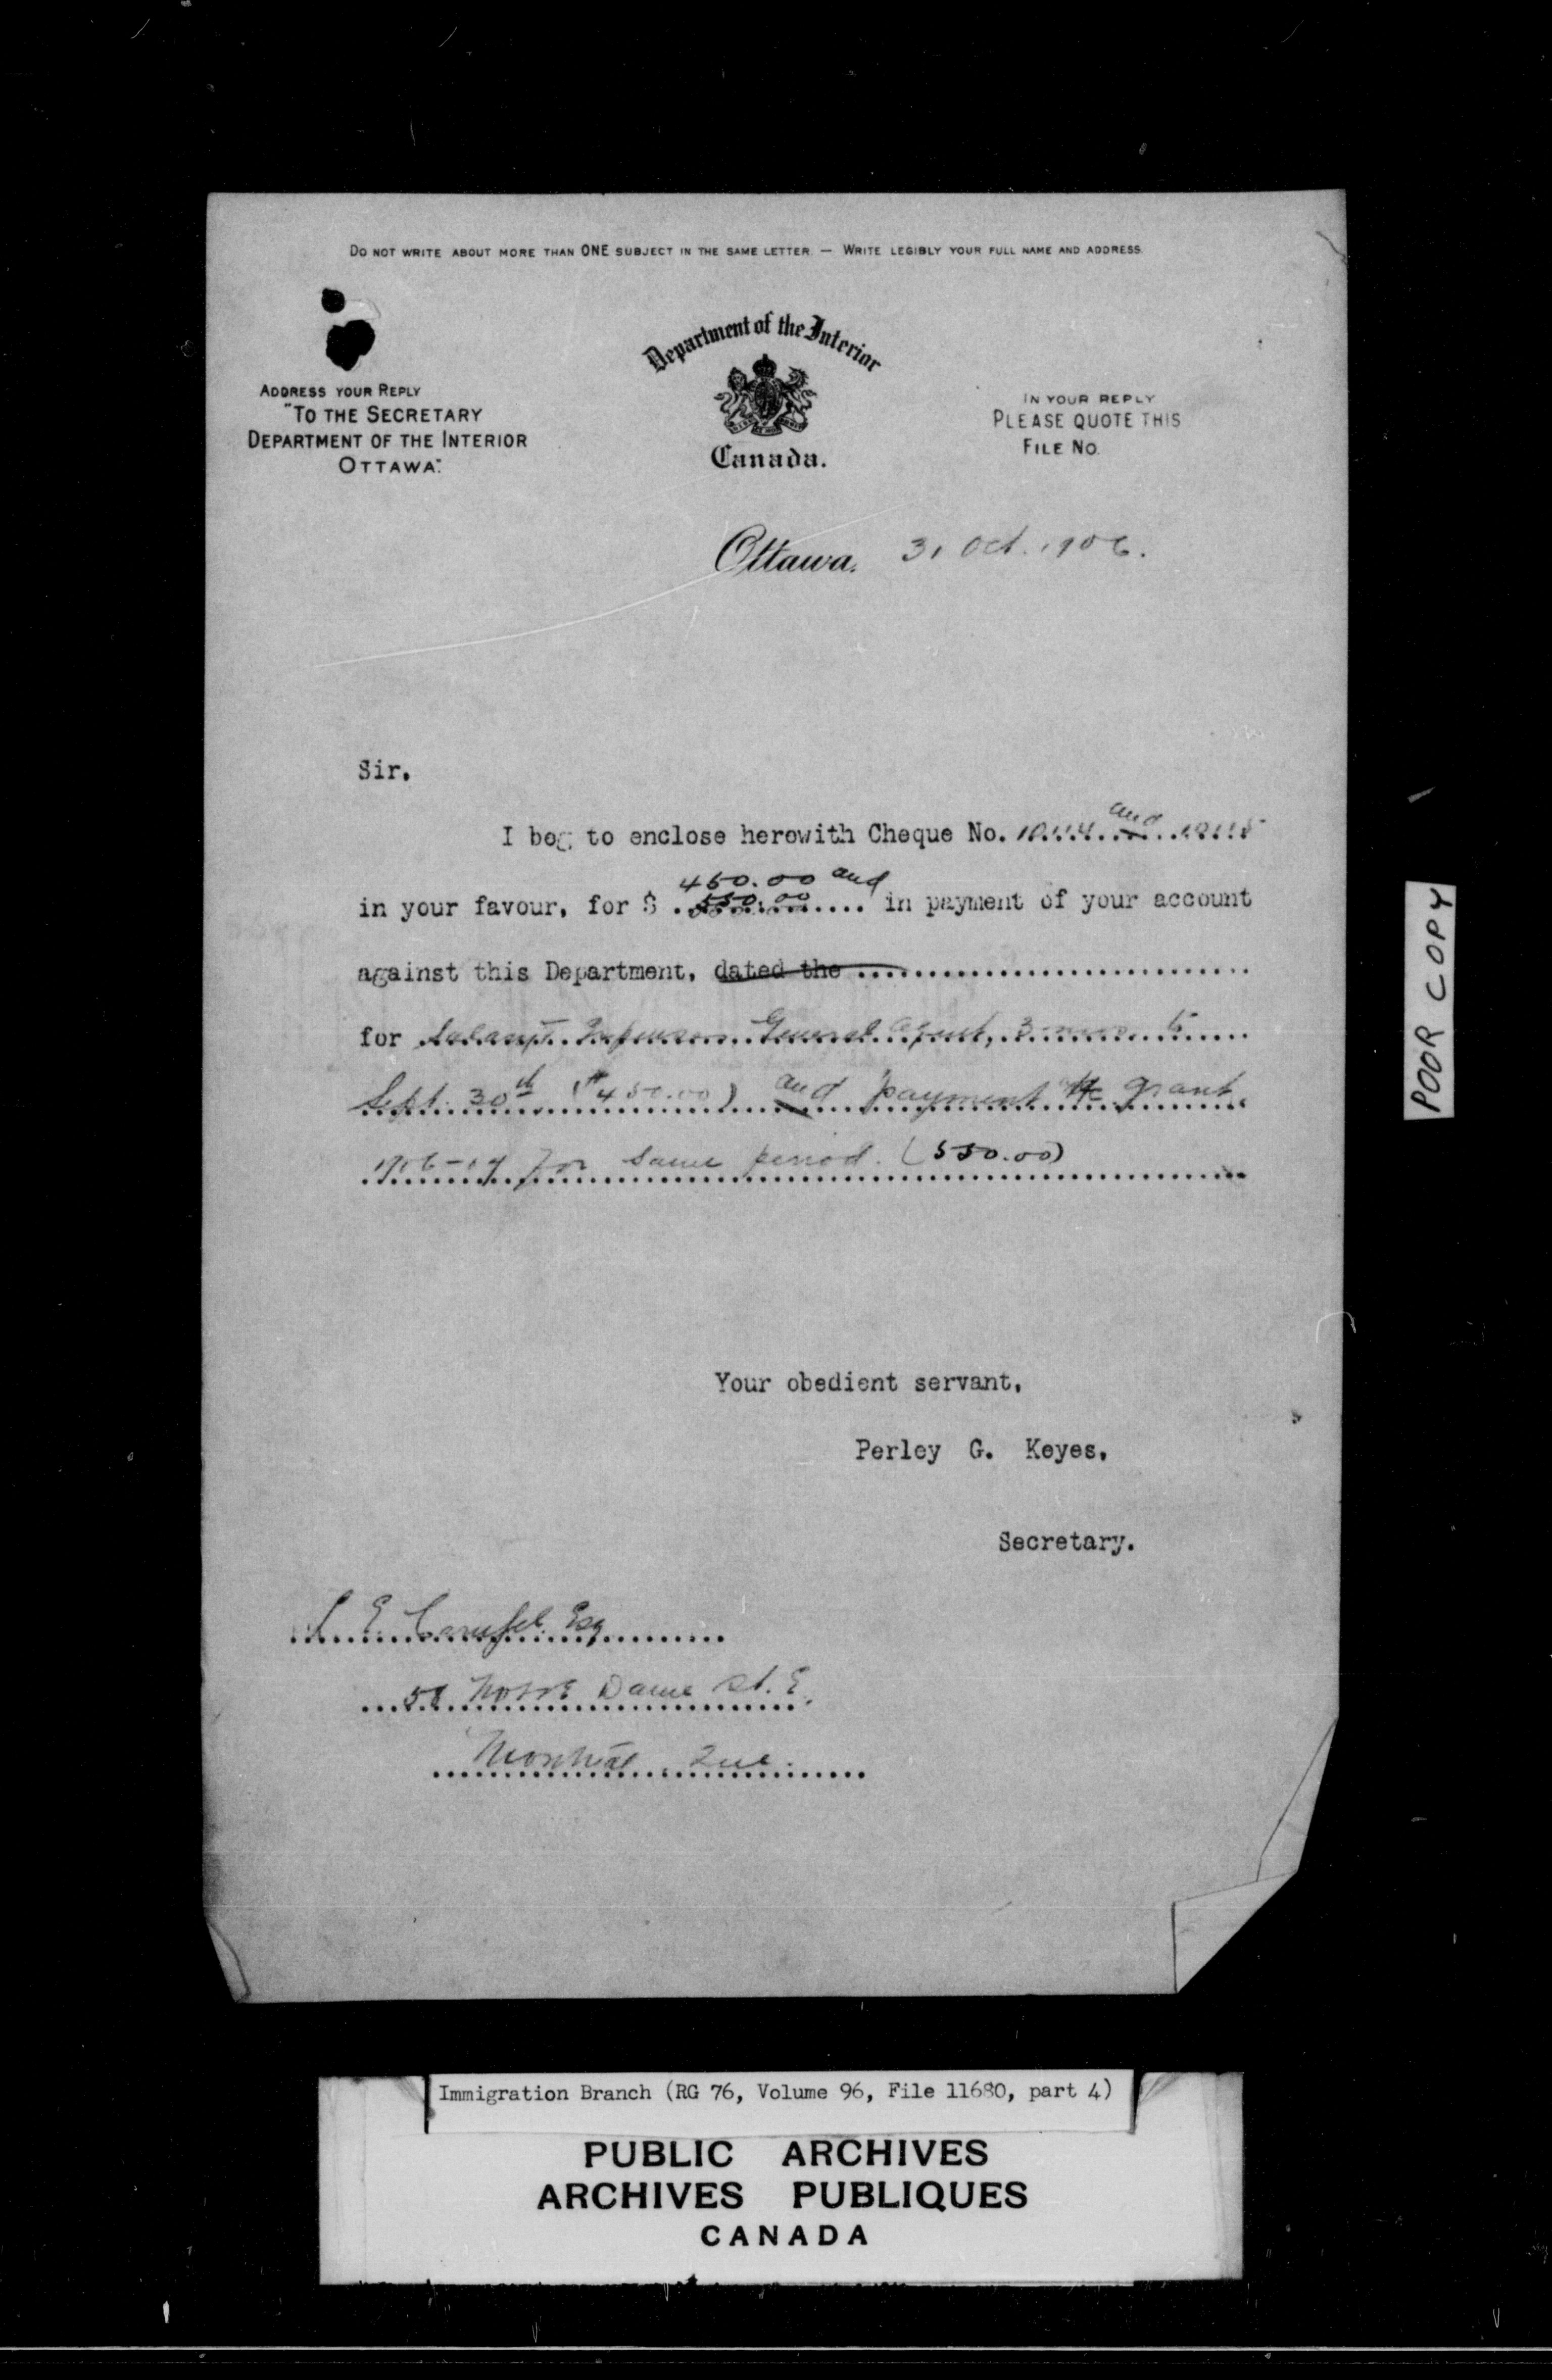 DO NOT WRITE ABOUT MORE THAN ONE SUBJECT IN THE SAME LETTER. — WRITE LEGIBLY YOUR FULL NAME AND ADDRESS.
ADDRESS YOUR REPLY
"TO THE SECRETARY
DEPARTMENT OF THE INTERIOR
OTTAWA."
Department of the Interior
Canada.
IN YOUR REPLY
PLEASE QUOTE THIS
FILE NO.
Ottawa, 31 Oct. 1906.
Sir.
I beg to enclose herewith Cheque No. and
450.00 and
in your favour, for $ 550.00 in payment of your account
against this Department, dated the
for General Agent, 3
Sept. 30th ($450.00) and payment grant
for same period. (550.00)
Your obedient servant,
Perley G. Keyes,
Secretary.
Esq
Notre Dame St. E.
Montreal Que.
POOR COPY
Immigration Branch (RG 76, Volume 96, File 11680, part 4)
PUBLIC ARCHIVES
ARCHIVES PUBLIQUES
CANADA